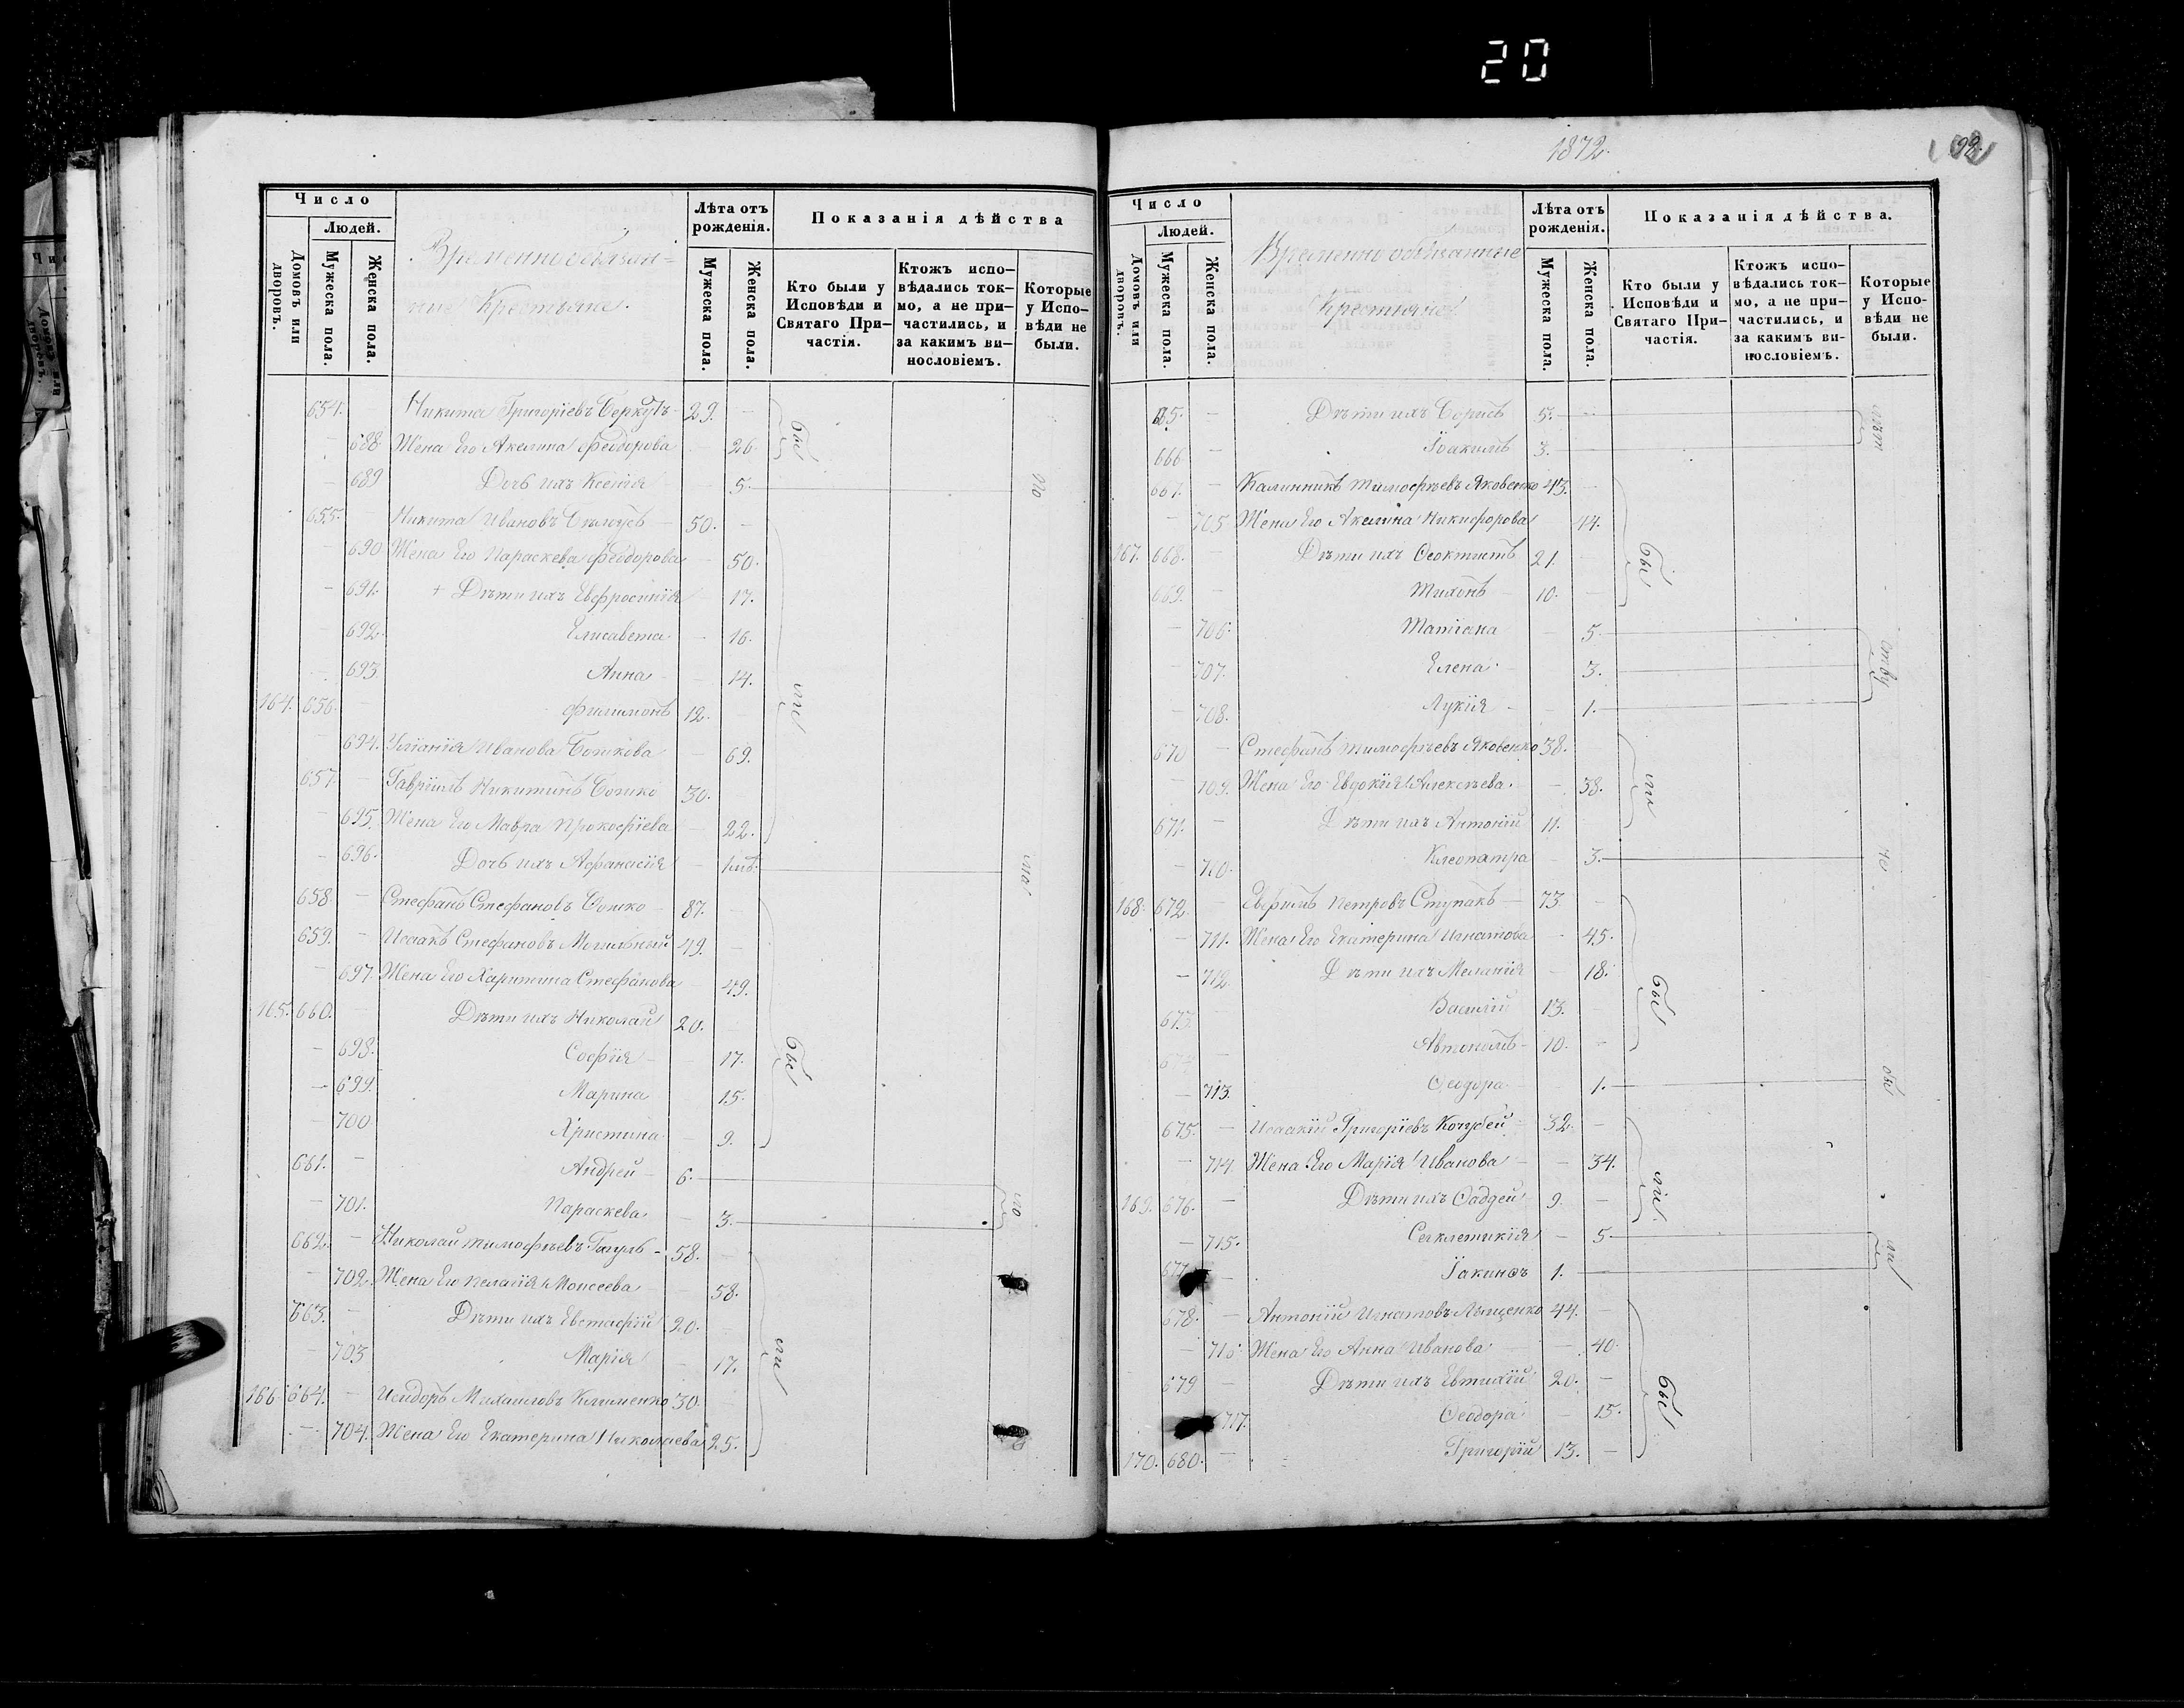 20
Число
Людей.
Домовъ или дворовъ.
Мужеска пола.
Женска пола.
Временнообязан-
ные Крестьяне.
Лѣта отъ рожденія.
Мужеска пола.
Женска пола.
Показанія дѣйства
Кто были у Исповѣди и Святаго При-частія.
Ктожъ испо-вѣдались ток-мо, а не при-частились, и за какимъ ви-нословіемъ.
Которые у Испо-вѣди не были.
654. Никита Григоріевъ Беркутъ 29.
688 Жена Его Акелина Феодорова 26.
689 Дочь ихъ Ксенія 5.
655. Никита Ивановъ 50.
690 Жена Его Параскева Феодорова 50.
691. + Дѣти ихъ Евфросинія 17.
692. Елисавета 16.
693. Анна 14.
164. 656. Филимонъ 12.
694. Уліанія Иванова Божкова 69.
657. Гавріилъ Никитинъ Божко 30.
695. Жена Его Мавра Прокофіева 22.
696. Дочь ихъ Афанасія
658. Стефанъ Стефановъ Божко 87.
659. Исаакъ Стефановъ Могильный 49.
697. Жена Его Харитина Стефанова 49.
165. 660. Дѣти ихъ Николай 20.
698. Софія 17.
699. Марина 15.
700 Христина 9.
661. Андрей 6.
701. Параскева 3.
662. Николай Тимофѣевъ 58.
702. Жена Его Пелагія Моисеева 58.
663. Дѣти ихъ Евстафій 20.
703 Марія 17.
166 664. Исидоръ Михаиловъ Клименко 30.
704. Жена Его Екатерина Николаева 25.
1872.
Число
Людей.
Домовъ или дворовъ.
Мужеска пола.
Женска пола.
Временно обязанные
Крестьяне.
Лѣта отъ рожденія.
Мужеска пола.
Женска пола.
Показанія дѣйства.
Кто были у Исповѣди и Святаго При-частія.
Ктожъ испо-вѣдались ток-мо, а не при-частились, и за какимъ ви-нословіемъ.
Которые у Испо-вѣди не были.
Дѣти ихъ Борисъ 5.
666 Іоакимъ 3.
667. Калинникъ Тимофѣевъ Яковенко 43.
705 Жена Его Акелина Никифорова 44.
167. 668. Дѣти ихъ Ѳеоктистъ 21.
669. Тихонъ 10.
706. Татіана 5.
707. Елена 3.
708. Лукія 1.
670 Стефанъ Тимофѣевъ Яковенко 38.
709. Жена Его Евдокія Алексѣева. 38.
671. Дѣти ихъ Антоній 11.
710. Клеопатра 3.
168. 672. Евфимъ Петровъ Ступакъ 73
711. Жена Его Екатерина Игнатова 45.
712 Дѣти ихъ Меланія 18.
673. Василій 13.
674 Автономъ 10.
713. Ѳеодора 1.
675. Исаакій Григоріевъ Кочубей 32.
714. Жена Его Марія Иванова 34.
169. 676. Дѣти ихъ Ѳаддей 9.
715. Сегклетикія 5
677. Іакинѳъ 1.
678. Антоній Игнатовъ Лященко 44.
716. Жена Его Анна Иванова 40.
679 Дѣти ихъ Евтихій 20.
717. Ѳеодора 15.
170. 680. Григорій 13.